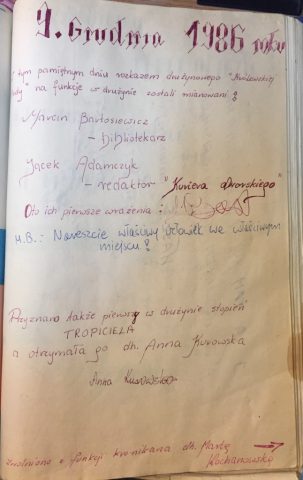 9. Grudnia 1986 roku
tym pamiętnym dniu rozkazem drużynowego "Królewskiej
na funkcje w drużynie zostali mianowani:
Marcin Bartosiewicz
- bibliotekarz
Jacek Adamczyk
- redaktor "Kuriera dworskiego"
Oto ich pierwsze wrażenia:
M.B.: Nareszcie właściwy człowiek we właściwym
miejscu!
Przyznano także pierwszy w drużynie stopień
TROPICIELA
a otrzymała go dh. Anna Kurowska
Anna Kurowska
Zwolniono z funkcji kronikarza dh. Martę
Kochanowską